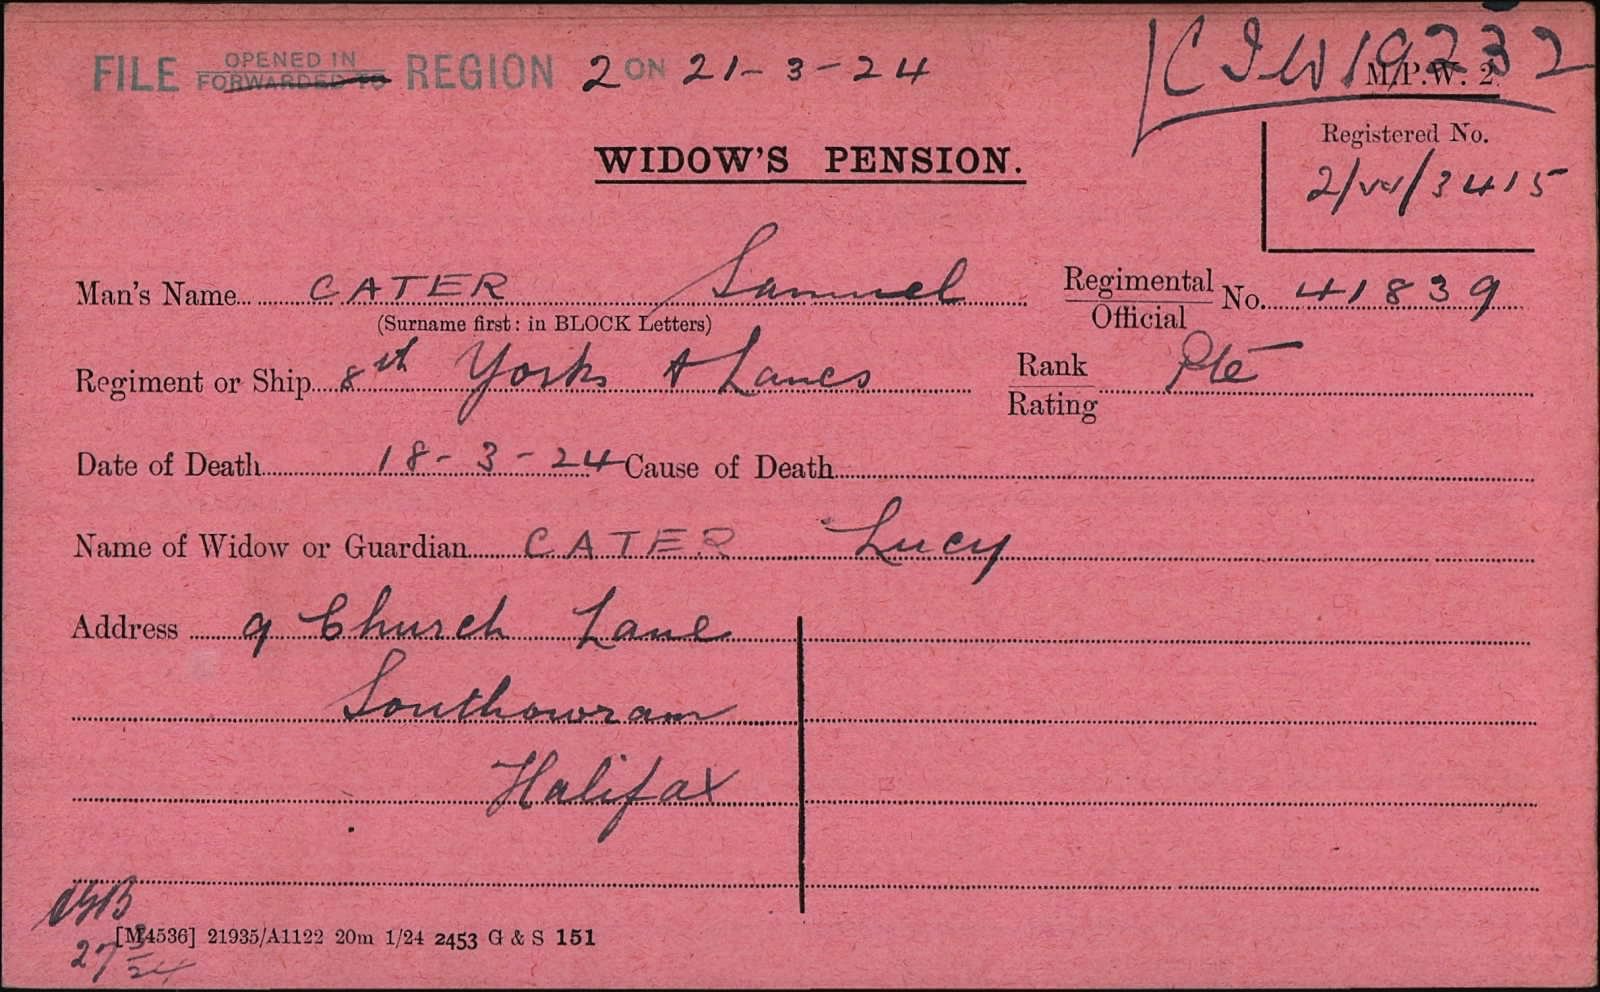 FILE OPENED IN FORWARDED TO REGION 2 ON 21-3-24
M.P.W. 2
WIDOW'S PENSION.
Registered No.
2/W/3415
Man's Name CATER Samuel
Regimental Official No. 41839
(Surname first: in BLOCK Letters)
Regiment or Ship 8th Yorks & Lancs
Rank Rating Pte
Date of Death 18-3-24 Cause of Death
Name of Widow or Guardian CATER Lucy
Address 9 Church Lane
Southowram
Halifax
[M4536] 21935/A1122 20m 1/24 2453 G & S 151
27 3/24